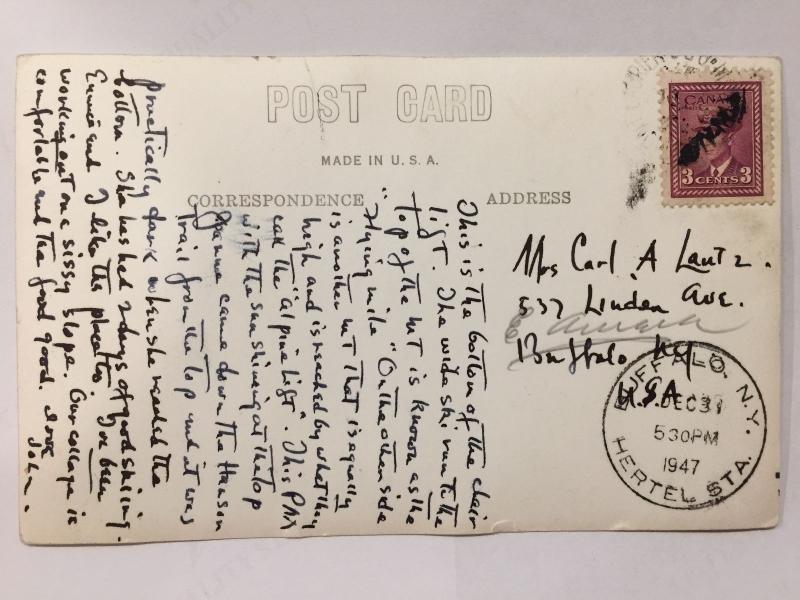 POST CARD
MADE IN U.S.A.
CORRESPONDENCE
ADDRESS
CANADA
3 CENTS 3
Mrs Carl A Lautz.
537 Linden Ave.
Buffalo NY
U.S.A.
BUFFALO. N.Y.
DEC 31
5 30 PM
1947
HERTEL STA.
This is the bottom of the chair
lift. The wide ski run to the
top of the mt is known as the
"Flying mile". On the other side
is another mt that is equally
high and is reached by what they
call the "alpine lift". This PM
with the sun shining at the top
came down the
trail from the top and it was
practically dark when she reached the
bottom. She has had 2 days of good skiing.
and I like the place too. I've been
working out on a sissy slope. Our cottage is
comfortable and the food good. Love
John.